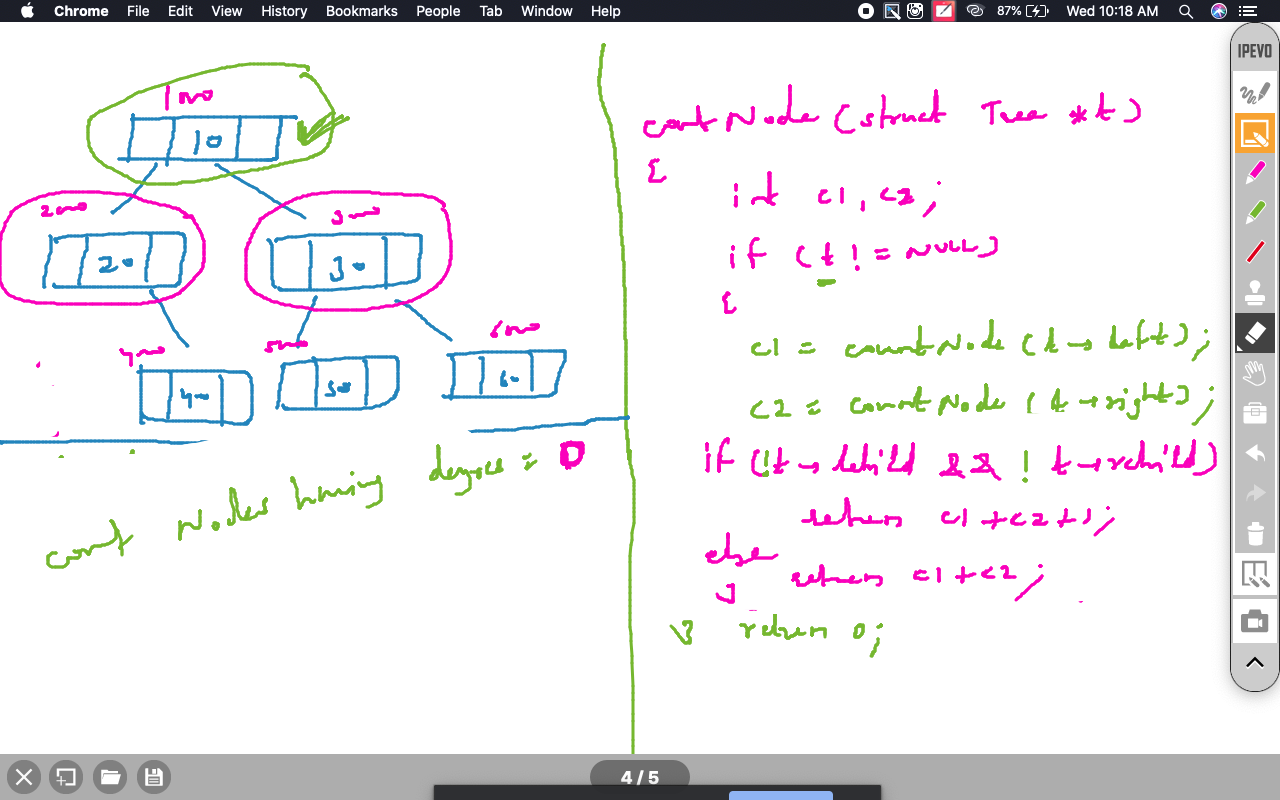 Chrome File Edit View History Bookmarks People Tab Window Help 87% Wed 10:18 AM
IPEVO
1000
10
2000
3000
20
30
4000
5000
6000
40
50
60
count Nodes having degree = 0
count Node (struct Tree *t)
{
int c1, c2;
if (t != NULL)
{
c1 = countNode (t → left);
c2 = countNode (t → right);
if (!t → lchild && ! t → rchild)
return c1 + c2 + 1;
else
return c1 + c2;
}
} return 0;
4 / 5